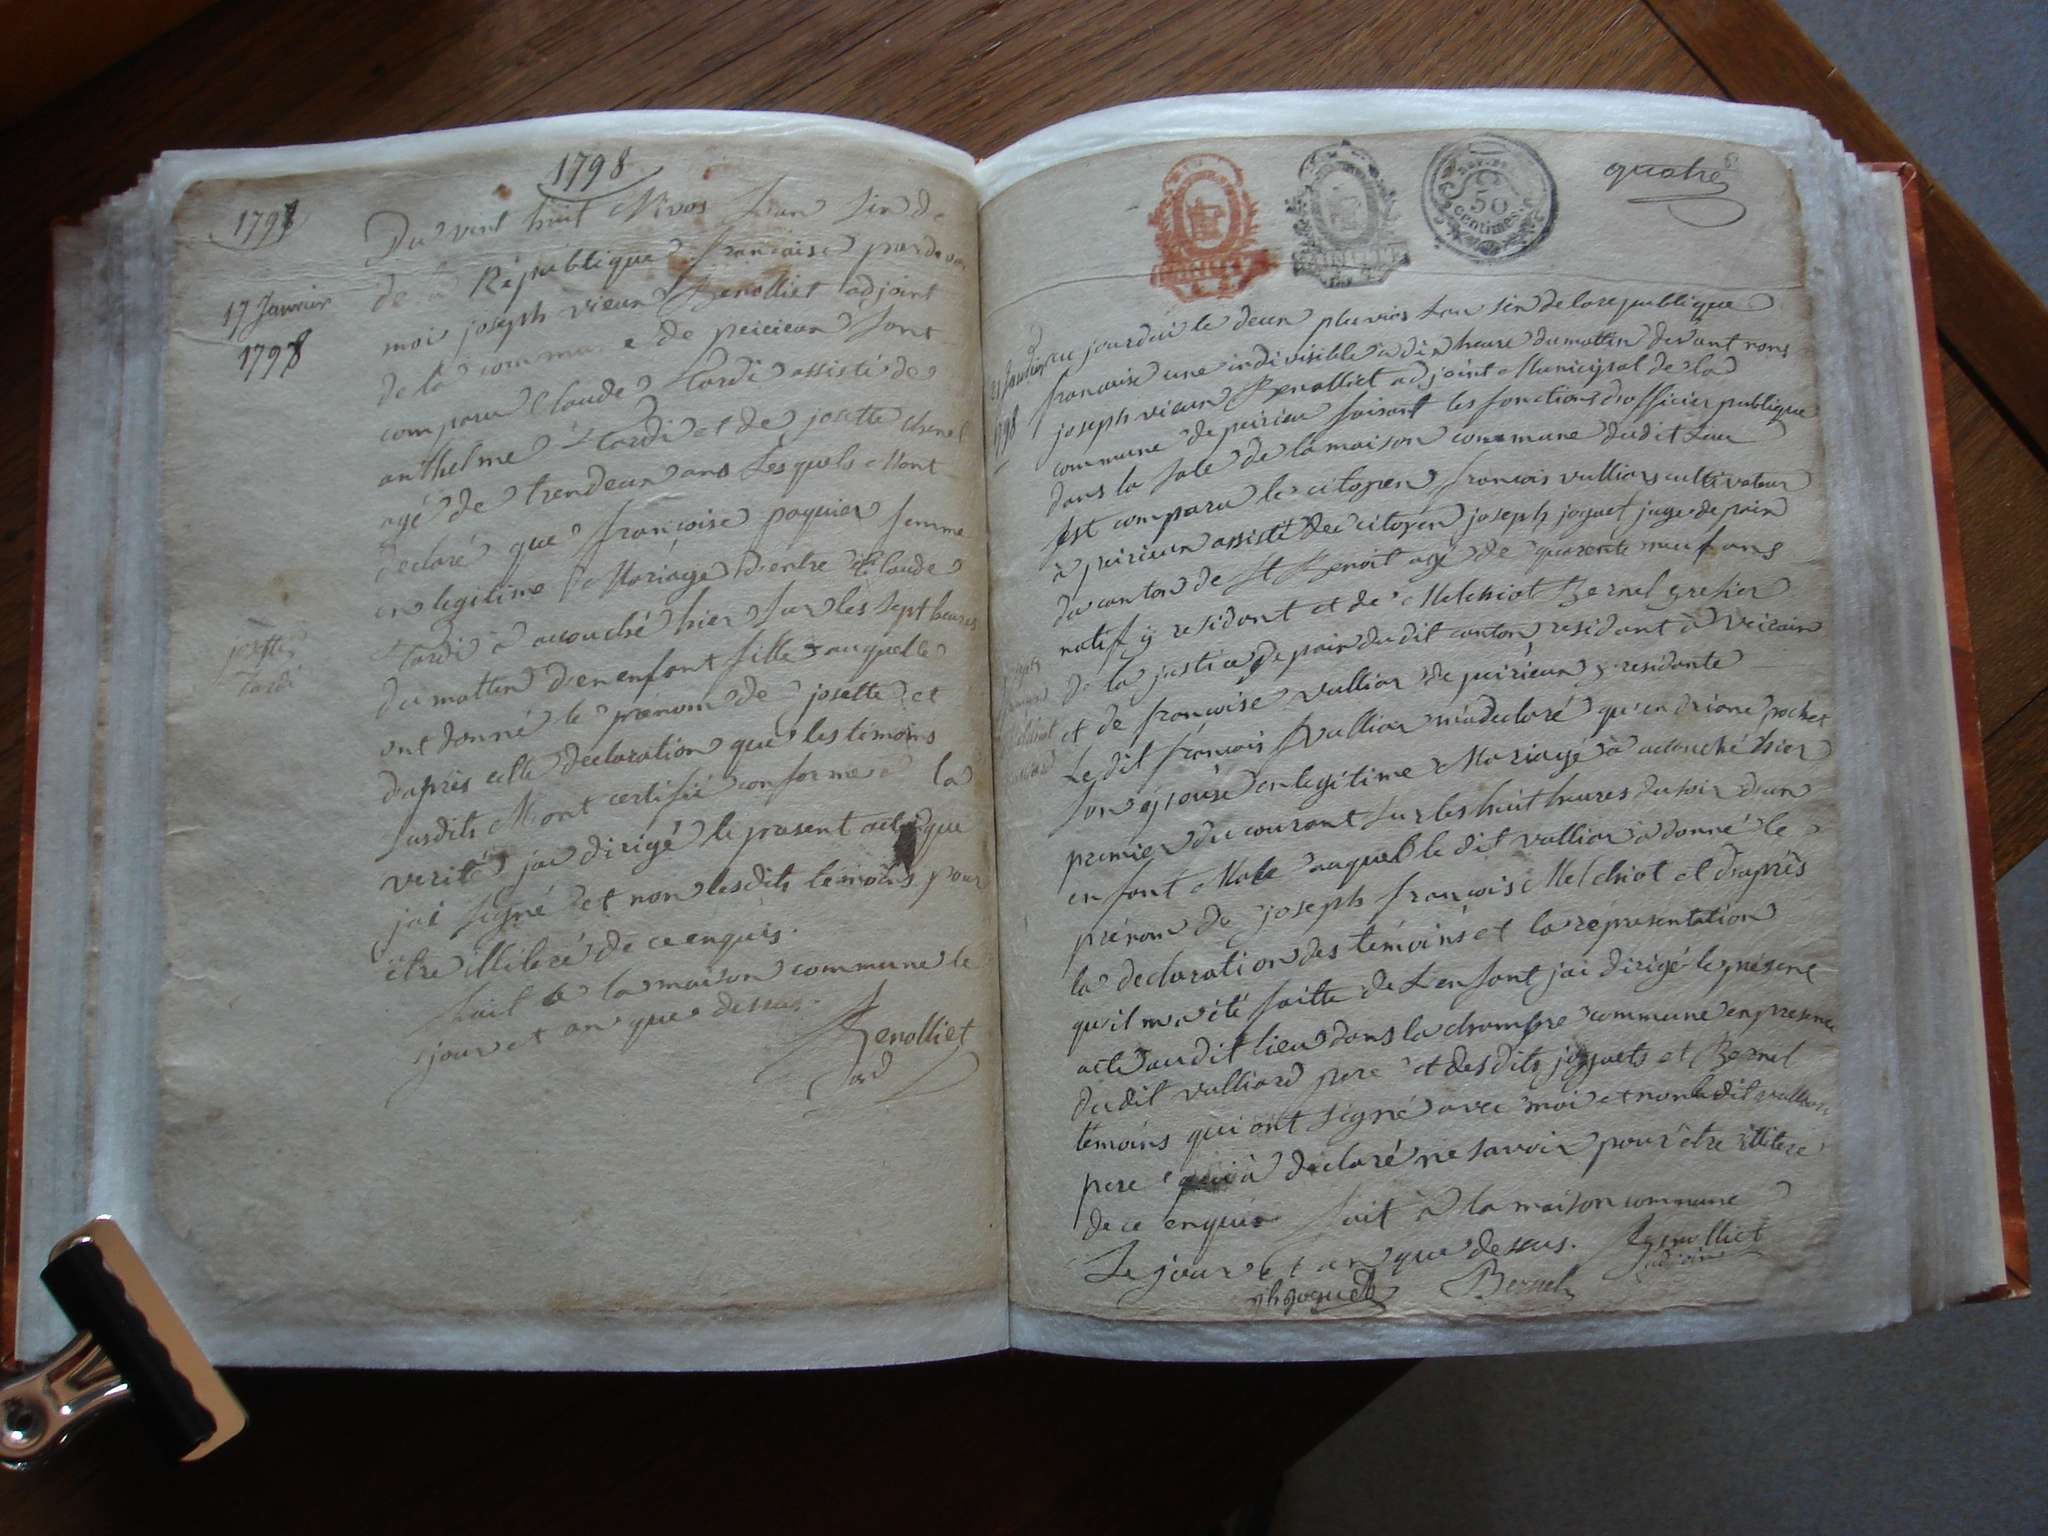 1798
1798
17 Janvier
1798
Du vint huit Nivos Lan Sin de
de la République francaise pardevan
moi joseph vieux Benolliet adjoint
de la commune de peirieux Sont
comparu Claude tardi assisté de
anthelme tardi et de josette chenel
agé de trendeux ans Lesquels Mont
declaré que françoise paquier femme
en legitime Mariage d'entre Claude
tardi à acouché hier Sur les Sept heures
du mattin d'en enfant fille auquelle
ont donné le prenom de josette et
d'aprés cette declaration que les témoins
Susdits M'ont certifié conforme a la
verité jai dirigé le present acte que
jai Signé et non lesdits temoins pour
étre illiteré de ce enquis.
fait a la maison commune le
jour et an que dessus.
Benolliet
josette
tardi
quatre
50
centimes
21 Janvier
1798
jourdui le deux pluvios Lan Sin de la republique
francaise une indivisible à dix heure du mattin devant nous
joseph vieux Benolliet adjoint Municipal de la
commune de peirieu faisant les fonctions d'officier publique
dans la Sale de la maison commune dudit Lieu
Est comparu le citoyen francois vulliar cultivateur
à peirieux assisté de citoyen joseph joguet juge de paix
du canton de St Benoit agé de quarente neuf ans
natif y residant et de Melchiot Bernel grefier
de la justice de paix dudit canton residant à
et de francoise vulliar de peirieux y residante
Le dit francois vulliar m'a declaré qu' pochet
Son épouse en legitime Mariage à acouché hier
premier du courant Sur les huit heures du soir d'un
enfant Male auquel le dit vulliar à donné le
prénom de joseph francois Melchiot et d'aprés
la declaration des témoins et la réprésentation
qu'il m'a été faitte de L'enfant jai dirigé le présent
acte audit lieu dans la chambre commune en presence
dudit vulliard pere et desdits joguets et Bernel
témoins qui ont Signé avec moi et non ledit vulliar
pere qui à déclaré ne Savoir pour étre illiteré
de ce enquis fait à la maison commune
Le jour et an que dessus.
Benolliet
adjoint
joguet
Bernel